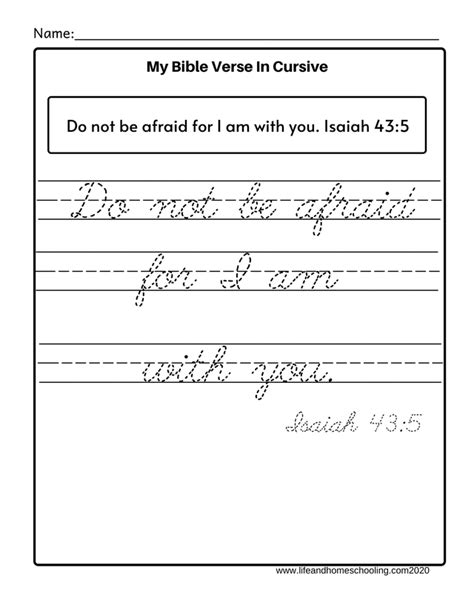 Name:
My Bible Verse In Cursive
Do not be afraid for I am with you. Isaiah 43:5
Do not be afraid
for I am
with you.
Isaiah 43:5
www.lifeandhomeschooling.com2020